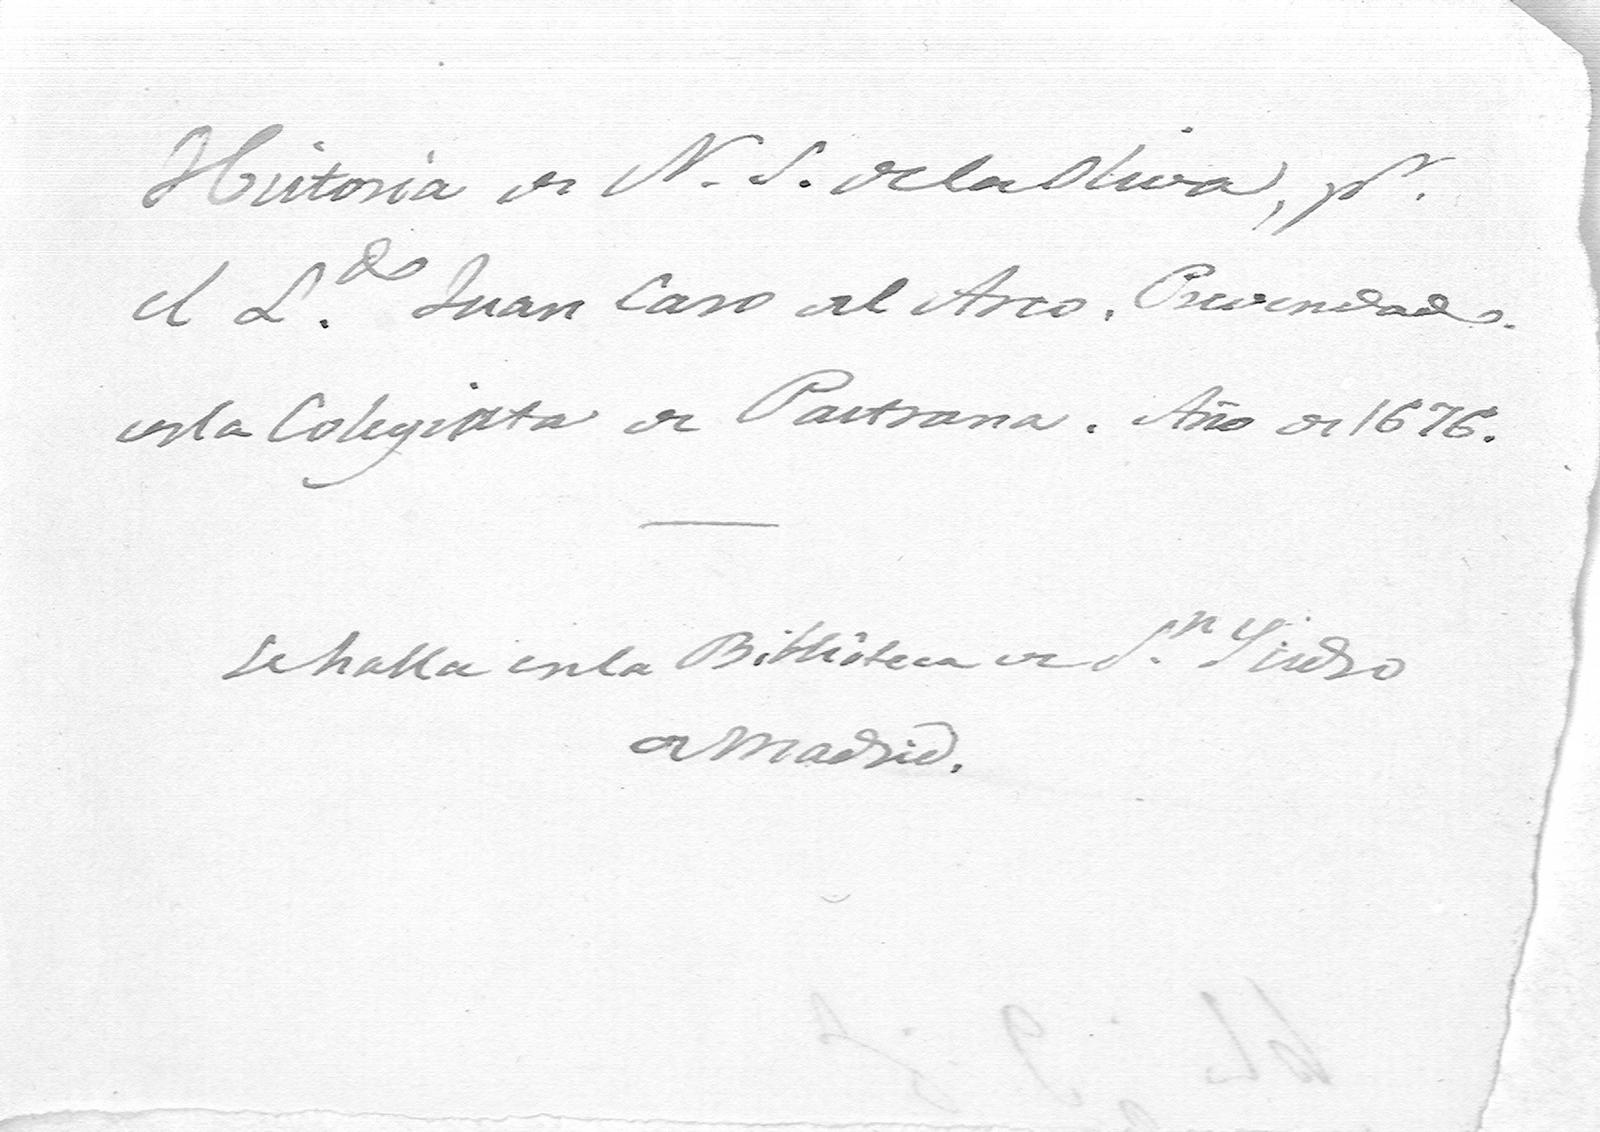 Historia de N. S. de la Oliva, pr.
el L.do Juan Caro del Arco, Prevendado.
en la Colegiata de Pastrana. Año de 1676.
Se halla en la Biblioteca de S.n Ysidro
de Madrid.